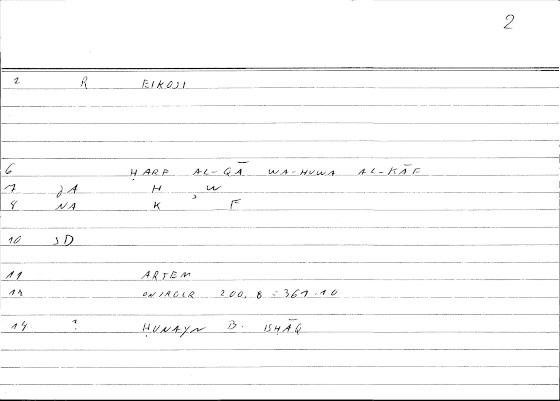 2
2 R EIKOSI
6 ḤARF AL-QĀ WA-HUWA AL-KĀF
7 ȝA H , W
8 NA K F
10 SD
11 ARTEM
12 ONIROCR 200, 8 = 361.10
14 ? ḤUNAYN B. ISḤĀQ